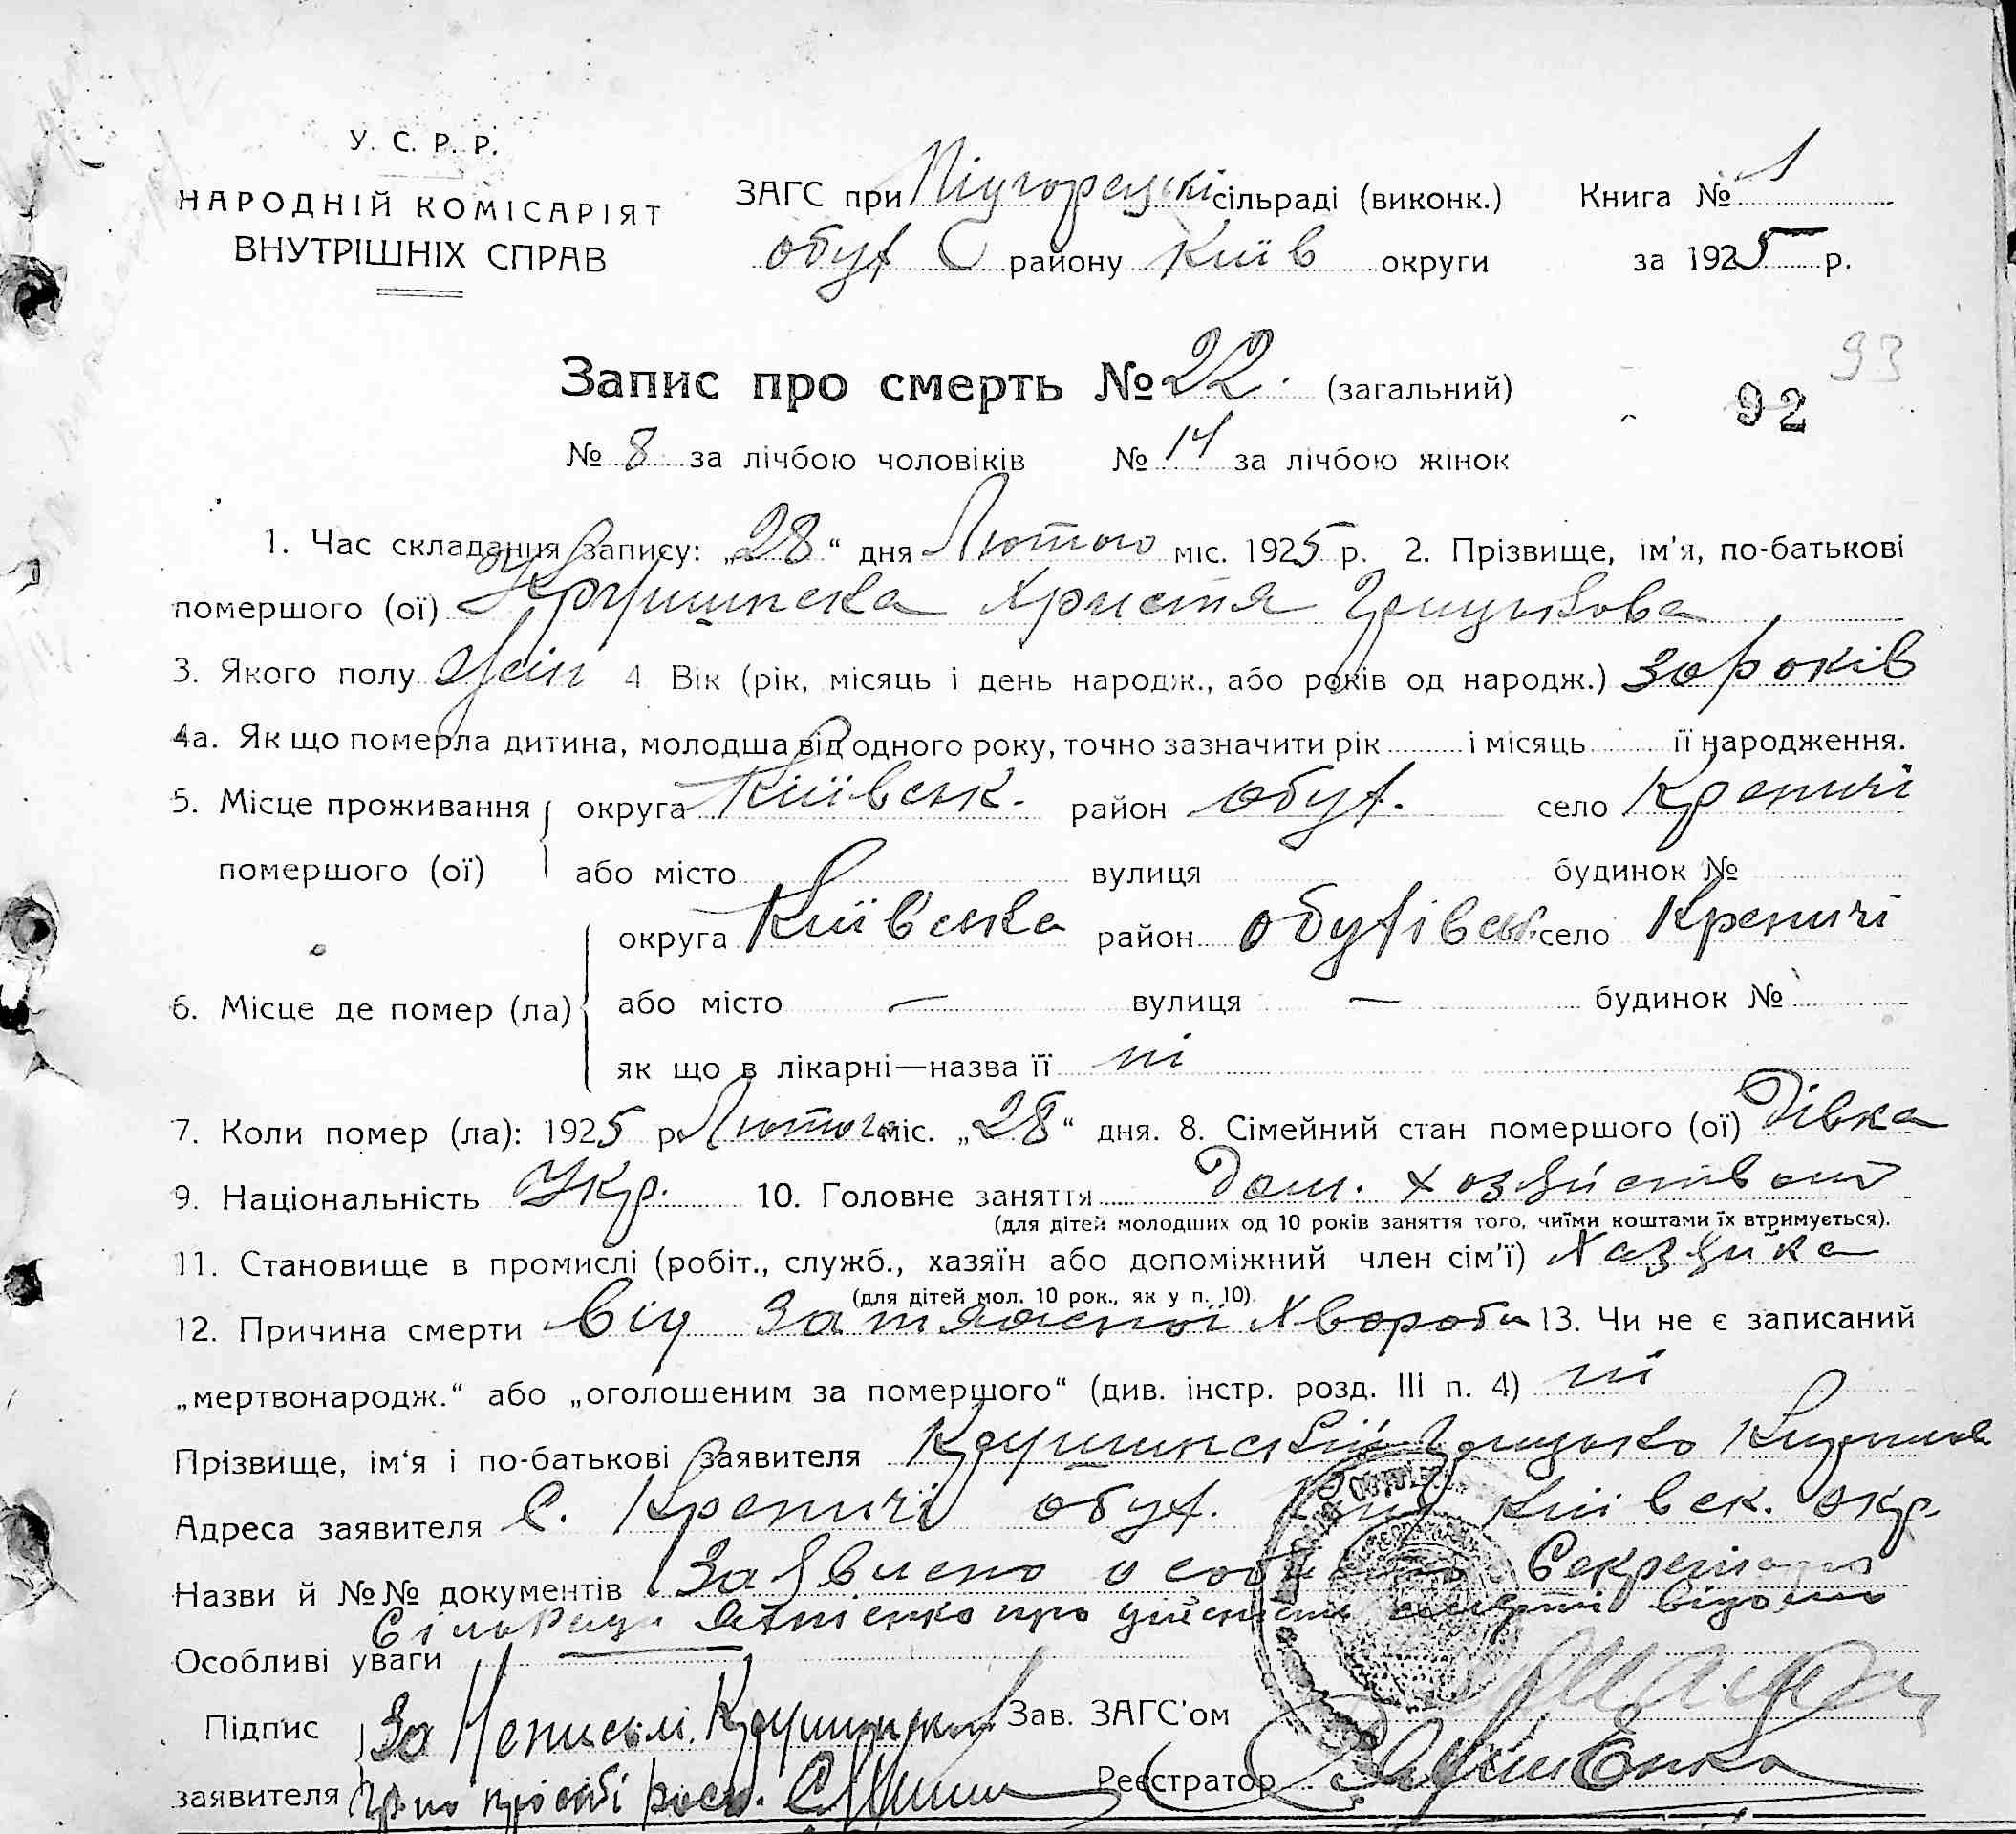 У. С. Р. Р.
НАРОДНІЙ КОМІСАРІЯТ
ВНУТРІШНІХ СПРАВ
ЗАГС при Підгорецькі сільраді (виконк.) Книга № 1
обух району Київ округи за 1925 р.
Запис про смерть № 22. (загальний)
93
92
№ 8 за лічбою чоловіків № 14 за лічбою жінок
1. Час складання запису: „28“ дня Лютого міс. 1925 р. 2. Прізвище, ім'я, по-батькові
помершого (ої) Крушинска Христя Грицькова
3. Якого полу Жін 4 Вік (рік, місяць і день народж., або років од народж.) 30 років
4а. Як що померла дитина, молодша від одного року, точно зазначити рік і місяць її народження.
5. Місце проживання округа Київськ. район обух. село Креничі
помершого (ої) або місто вулиця будинок №
округа Київська район обухівськ село Креничі
6. Місце де помер (ла) або місто — вулиця — будинок №
як що в лікарні—назва її ні
7. Коли помер (ла): 1925 р. Лютого міс. „28“ дня. 8. Сімейний стан помершого (ої) Дівка
9. Національність Укр. 10. Головне заняття Дом. хозяйством
(для дітей молодших од 10 років заняття того, чиїми коштами їх втримується).
11. Становище в промислі (робіт., служб., хазяїн або допоміжний член сім'ї) Хазяйка
(для дітей мол. 10 рок., як у п. 10).
12. Причина смерти від затяжної хвороби 13. Чи не є записаний
„мертвонародж.“ або „оголошеним за помершого“ (див. інстр. розд. III п. 4) ні
Прізвище, ім'я і по-батькові заявителя Крушинський Грицько
Адреса заявителя С. Креничі обух. Київськ. окр.
Назви й №№ документів Заявлено особисто Секретарю
Сільради про дійсність смерті відомо
Особливі уваги
Підпис За Неписьм. Крушинськ. Зав. ЗАГС'ом
заявителя по просьбі росп. Реєстратор